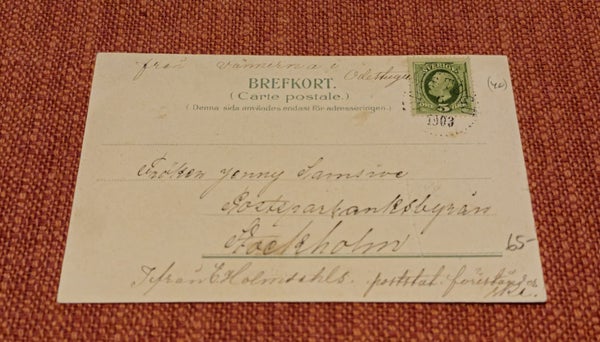 från vännerna i Odeshögen
BREFKORT.
(Carte postale.)
(Denna sida användes endast för adresseringen.)
SVERIGE
5
1903
Fröken Jenny Samsioe
Postsparbanksbyrån
Stockholm
65-
från C Holmdahls. poststat. förestånd